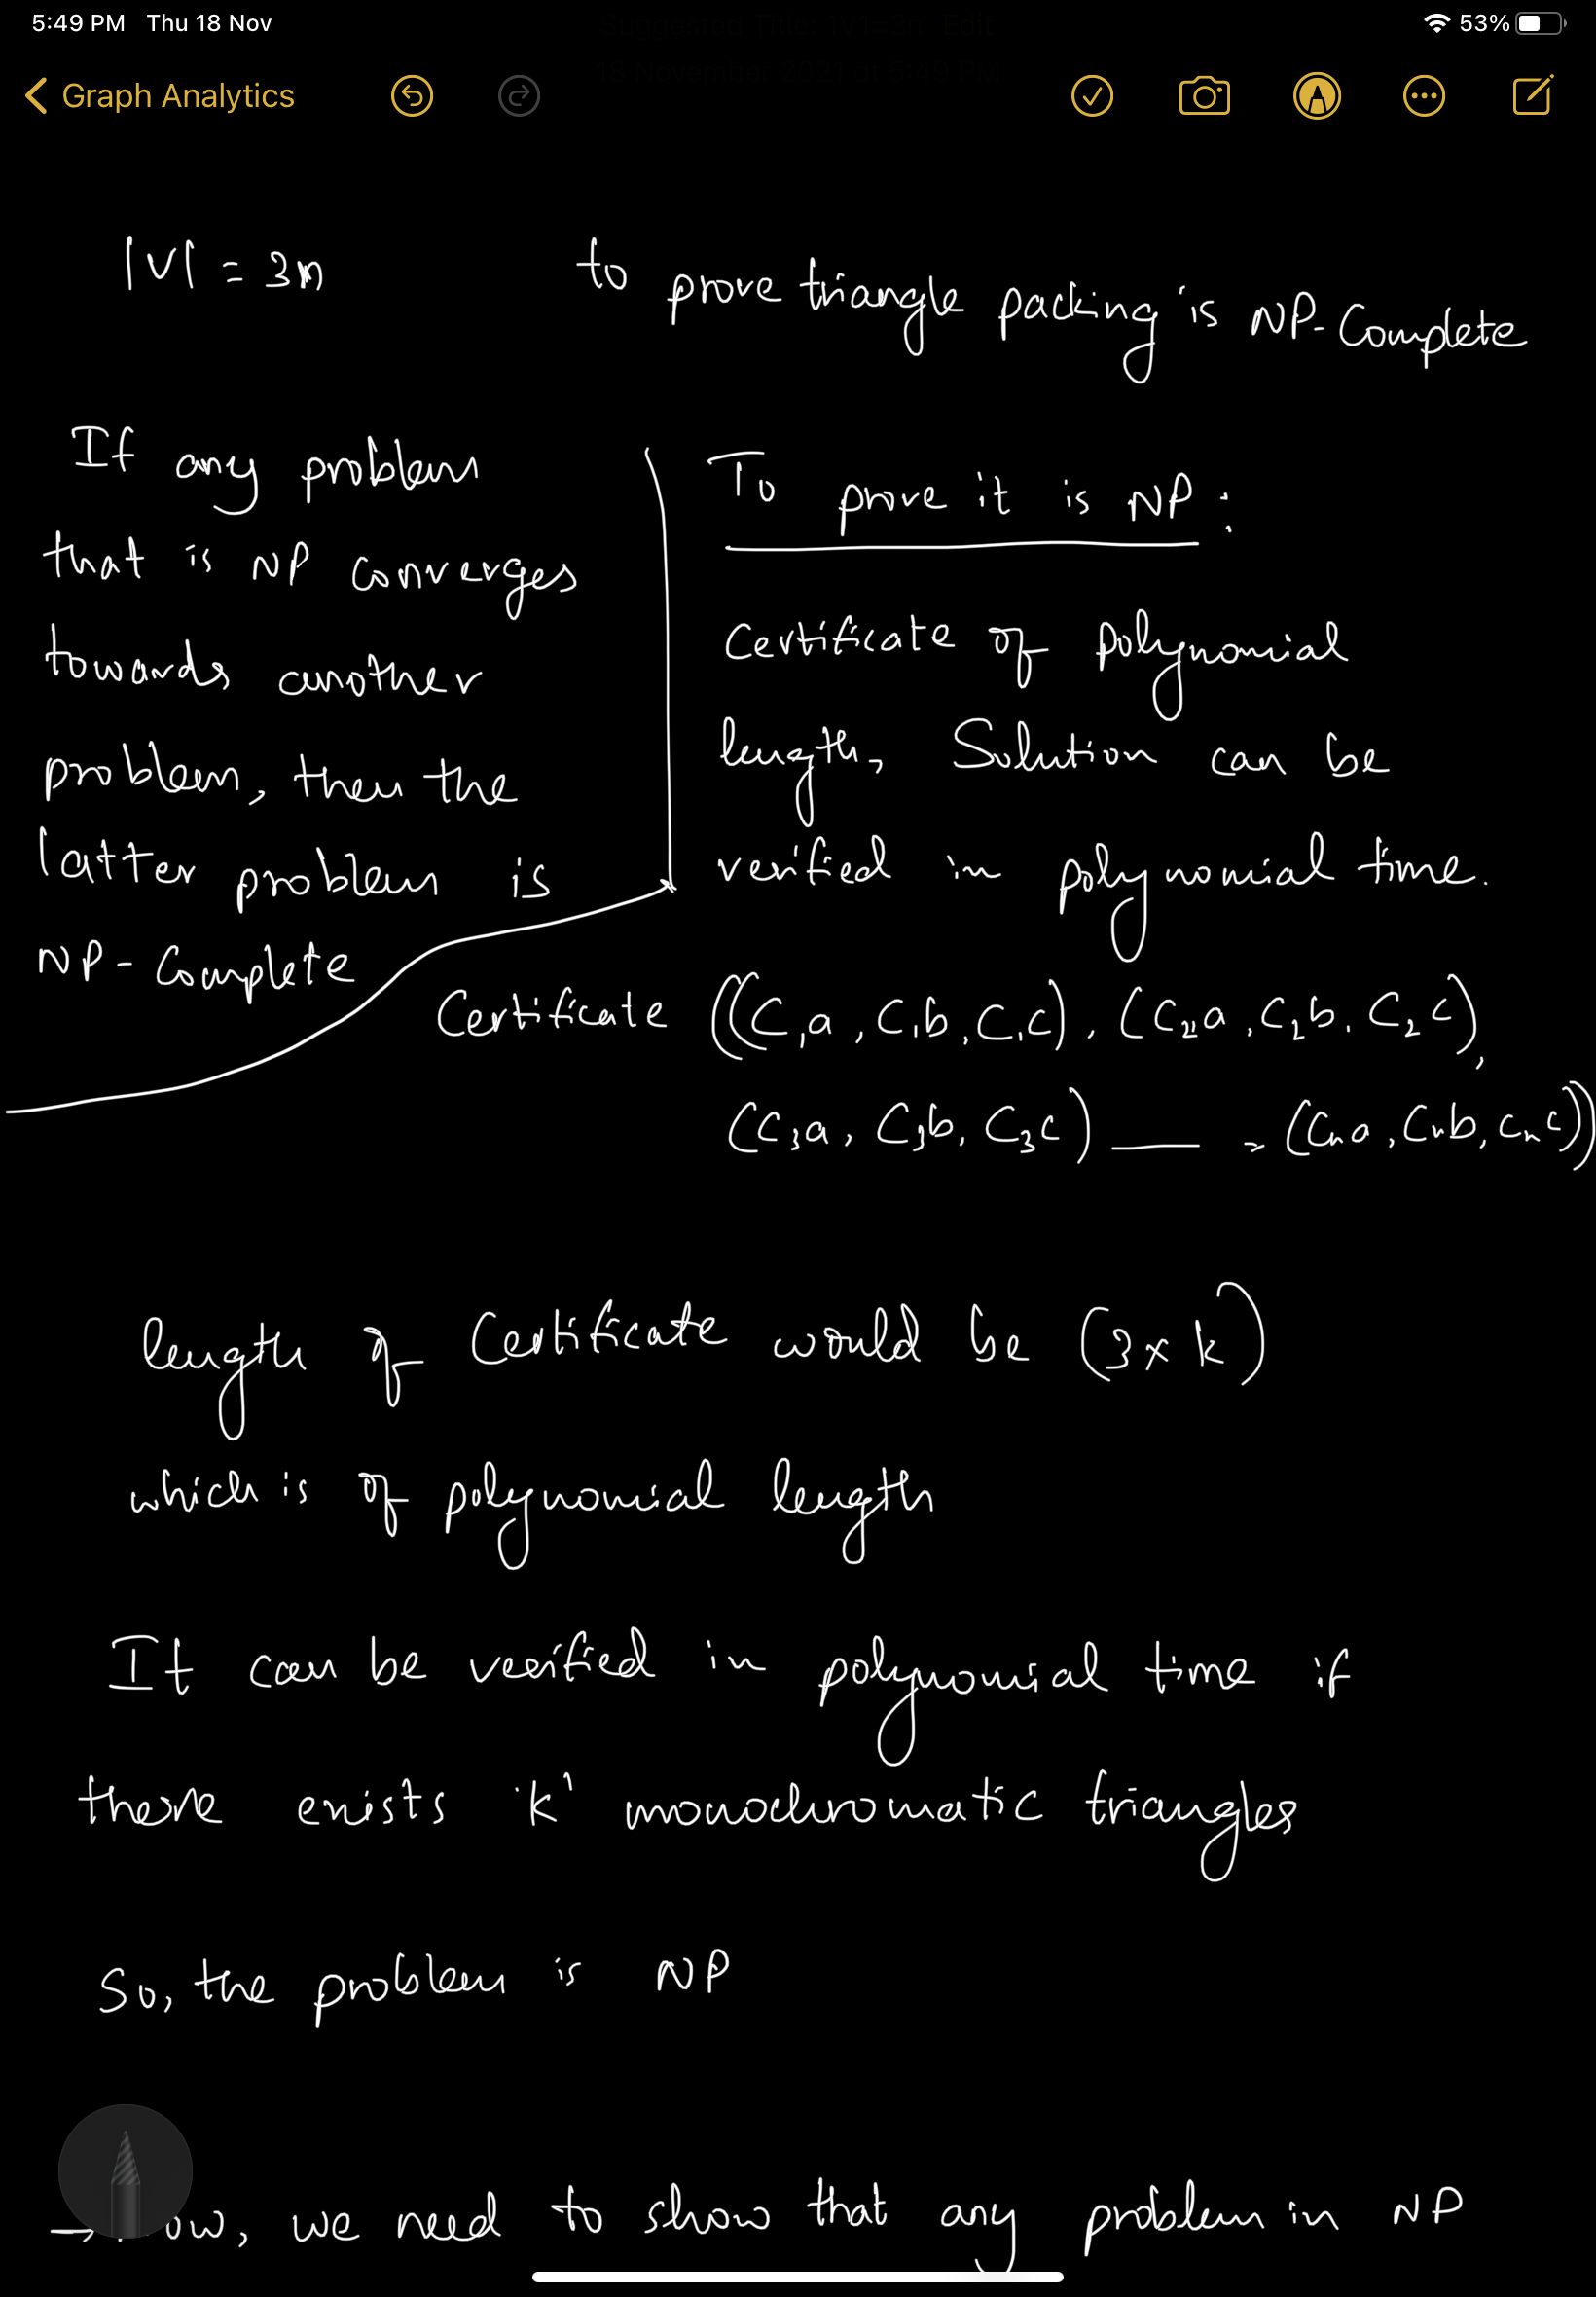 5:49 PM Thu 18 Nov
53%
Graph Analytics
|V| = 3n
to prove triangle packing is NP-Complete
If any problem
that is NP converges
towards another
problem, then the
latter problem is
NP-Complete
To prove it is NP:
Certificate of polynomial
length, Solution can be
verified in polynomial time.
Certificate ((C₁a, C₁b, C₁c), (C₂a, C₂b, C₂c),
(C₃a, C₃b, C₃c) — , (Cna, Cnb, Cnc))
length of Certificate would be (3 x k)
which is of polynomial length
It can be verified in polynomial time if
there exists 'k' monochromatic triangles
So, the problem is NP
we need to show that any problem in NP